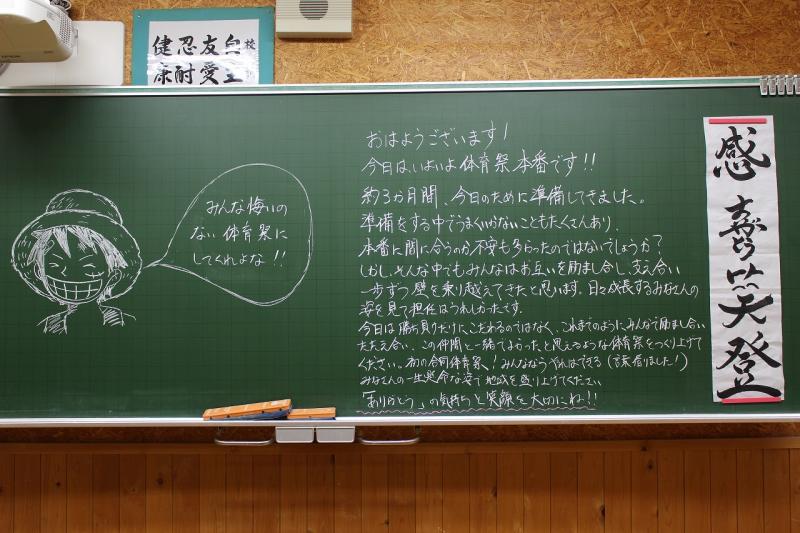 健忍友自校
康耐愛主訓
みんな悔いの
ない体育祭に
してくれよな!!
おはようございます!
今日はいよいよ体育祭本番です!!
約3か月間、今日のために準備してきました。
準備をする中でうまくいかないこともたくさんあり、
本番に間に合うのか不安もあったのではないでしょうか?
しかし、そんな中でもみんなはお互いを励まし合い、支え合い
一歩ずつ壁を乗り越えてきたと思います。日々成長するみなさんの
姿を見て担任はうれしかったです。
今日は勝ち負けだけにこだわるのではなく、これまでのようにみんなで励まし合い
たたえ合い、この仲間と一緒でよかったと思えるような体育祭をつくり上げて
ください。初の合同体育祭、!みんなならやればできる(言葉借りました!)
みなさんの一生懸命な姿で地域を盛り上げてください。
「ありがとう」の気持ちと笑顔を大切にね!!
感
喜
笑
登